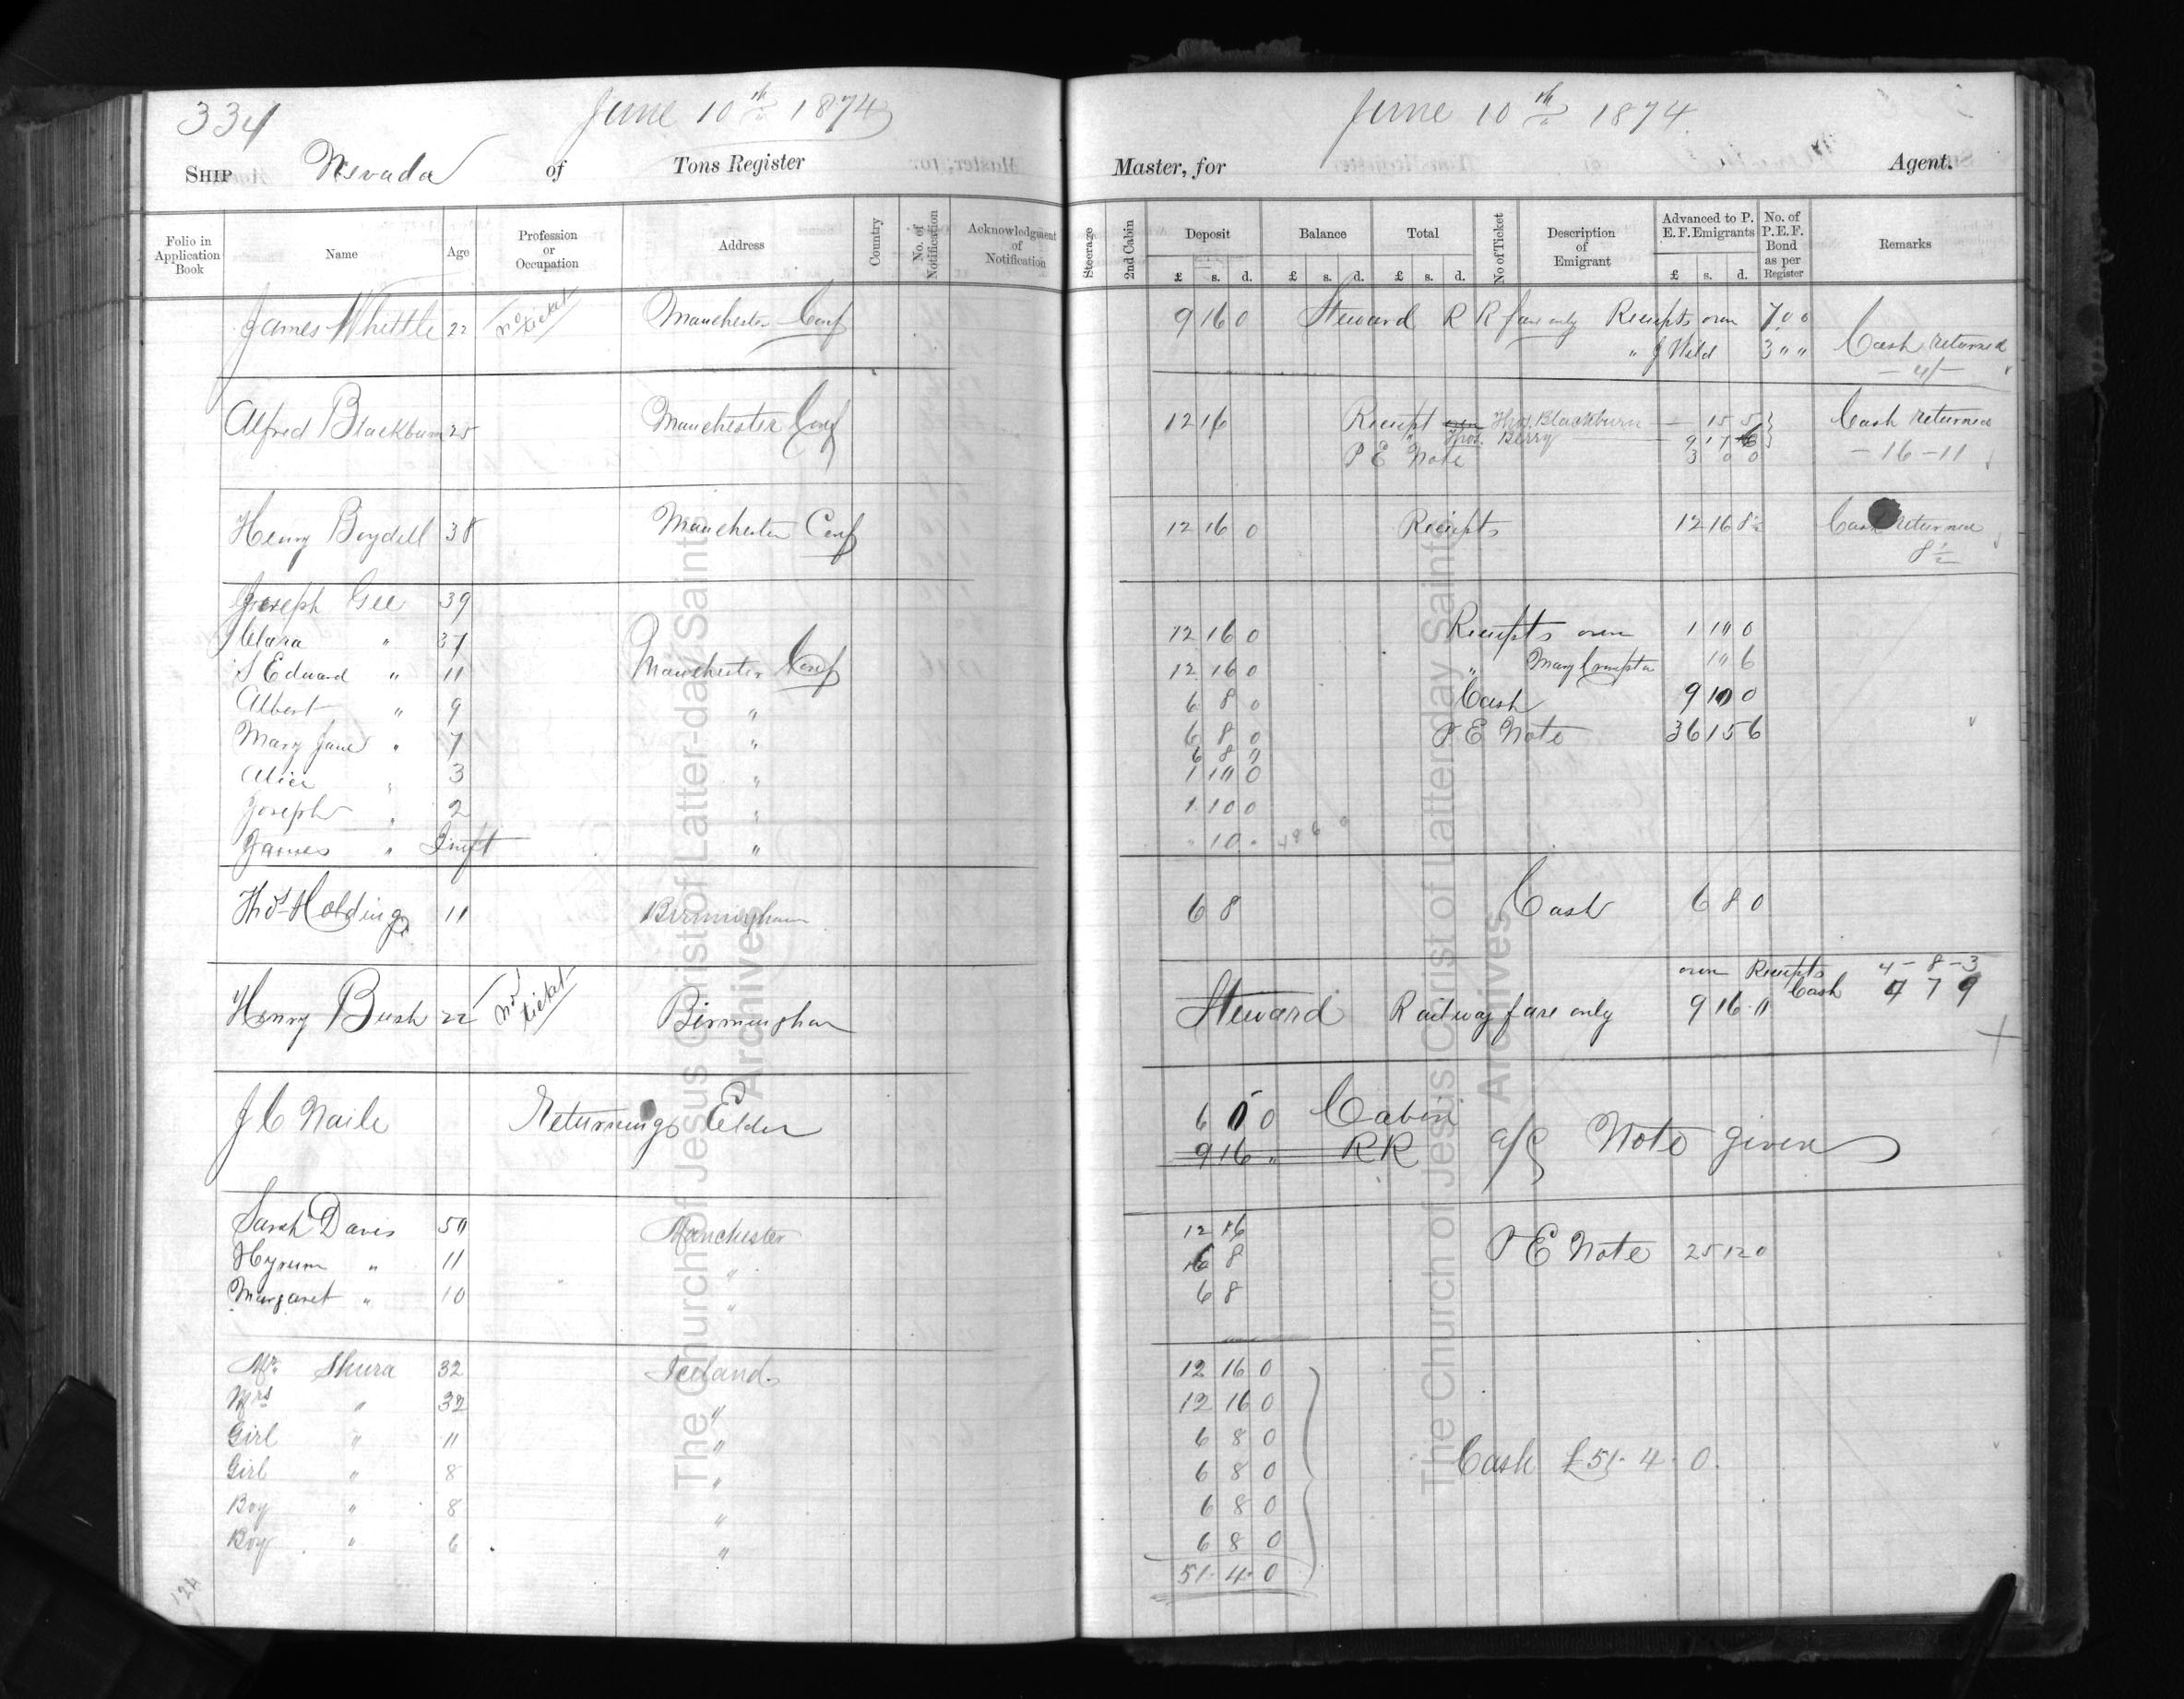 334
June 10th 1874
SHIP Nevada of Tons Register
Folio in Application Book
Name
Age
Profession or Occupation
Address
Country
No. of Notification
Acknowledgment of Notification
James Whittle 22 No ticket Manchester Conf
Alfred Blackburn 25 Manchester Conf
Henry Boydell 38 Manchester Conf
Joseph Gee 39
Clara " 37
S Edward " 11 Manchester Conf
Albert " 9 "
Mary Jane " 7 "
Alice " 3 "
Joseph " 2 "
James " Inft "
Thos Holding 11 Birmingham
Henry Bush 22 No ticket Birmingham
J C Naile Returning Elder
Sarah Davis 50 Manchester
Hyrum " 11 "
Margaret " 10 "
Mr. Shura 32 Iceland.
Mrs " 32 "
Girl " 11 "
Girl " 8 "
Boy " 8 "
Boy " 6 "
124
June 10th 1874
Master, for Agent.
Steerage
2nd Cabin
Deposit £ s. d.
Balance £ s. d.
Total £ s. d.
No of Ticket
Description of Emigrant
Advanced to P. E. F. Emigrants £ s. d.
No. of P. E. F. Bond as per Register
Remarks
9 16 0 Steward R R fare only Receipts own 7 0 0
" J Wild 3 " " Cash returned
- 4/-
12 16 Receipt Thos. Blackburn - 15 5 Cash returned
" Thos. Berry 9 17 6
P E Note 3 0 0 - 16 - 11
12 16 0 Receipts 12 16 8½ Cash returned
8½
12 16 0 Receipts own 1 10 0
12 16 0 " Mary Crompton 10 6
6 8 0 Cash 9 10 0
6 8 0 P E Note 36 15 6
6 8 "
1 10 0
1 10 0
" 10 " 48 6 0
6 8 Cash 6 8 0
own Receipts 4 - 8 - 3
Cash 4 7 9
Steward Railway fare only 9 16 0
6 0 0 Cabin
9 16 " RR a/c Note given
12 16
6 8 P E Note 25 12 0
6 8
12 16 0
12 16 0
6 8 0
6 8 0 Cash £51. 4. 0.
6 8 0
6 8 0
51. 4. 0
The Church of Jesus Christ of Latter-day Saints
Archives
The Church of Jesus Christ of Latter-day Saints
Archives